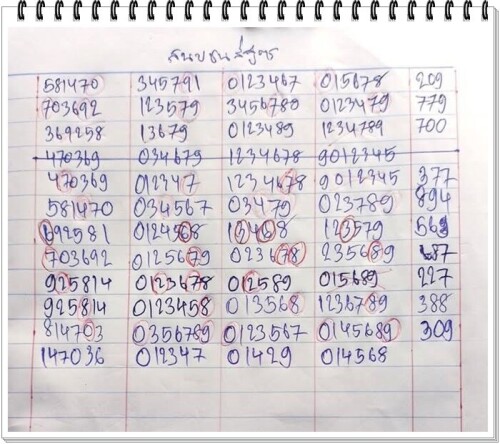 สนบชนสี่สูตร
581470 345791 0123467 015678 209
703692 123579 3456780 0123479 779
369258 13679 0123489 1234789 700
470369 034679 1234678 9012345
470369 012347 1234678 9012345 377
581470 034567 03479 023789 894
692581 0124568 123579 569
703692 0125679 023678 235689 487
925814 0123678 012589 015689 227
925814 0123458 013568 1236789 388
814703 0356789 0123567 0145689 309
147036 012347 01429 014568